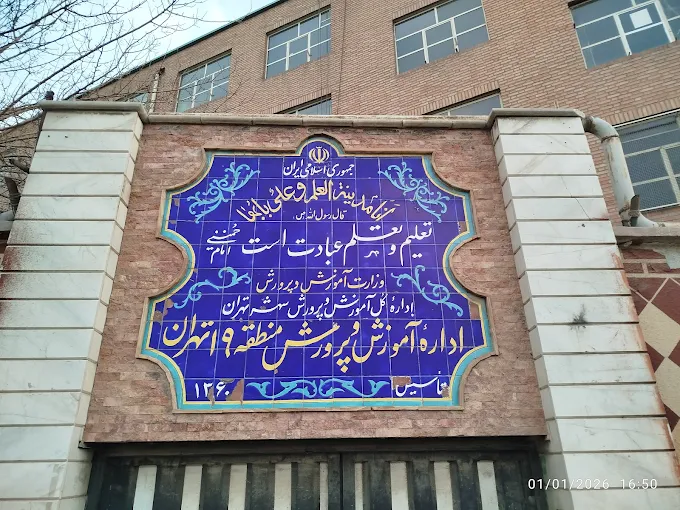 جمهوری اسلامی ایران
انا مدینة العلم و علی بابها
قال رسول الله ص
تعلیم و تعلم عبادت است امام خمینی
وزارت آموزش و پرورش
اداره کل آموزش و پرورش شهر تهران
اداره آموزش و پرورش منطقه ۱۹ تهران
تاسیس ۱۳۶۰
01/01/2026 16:50